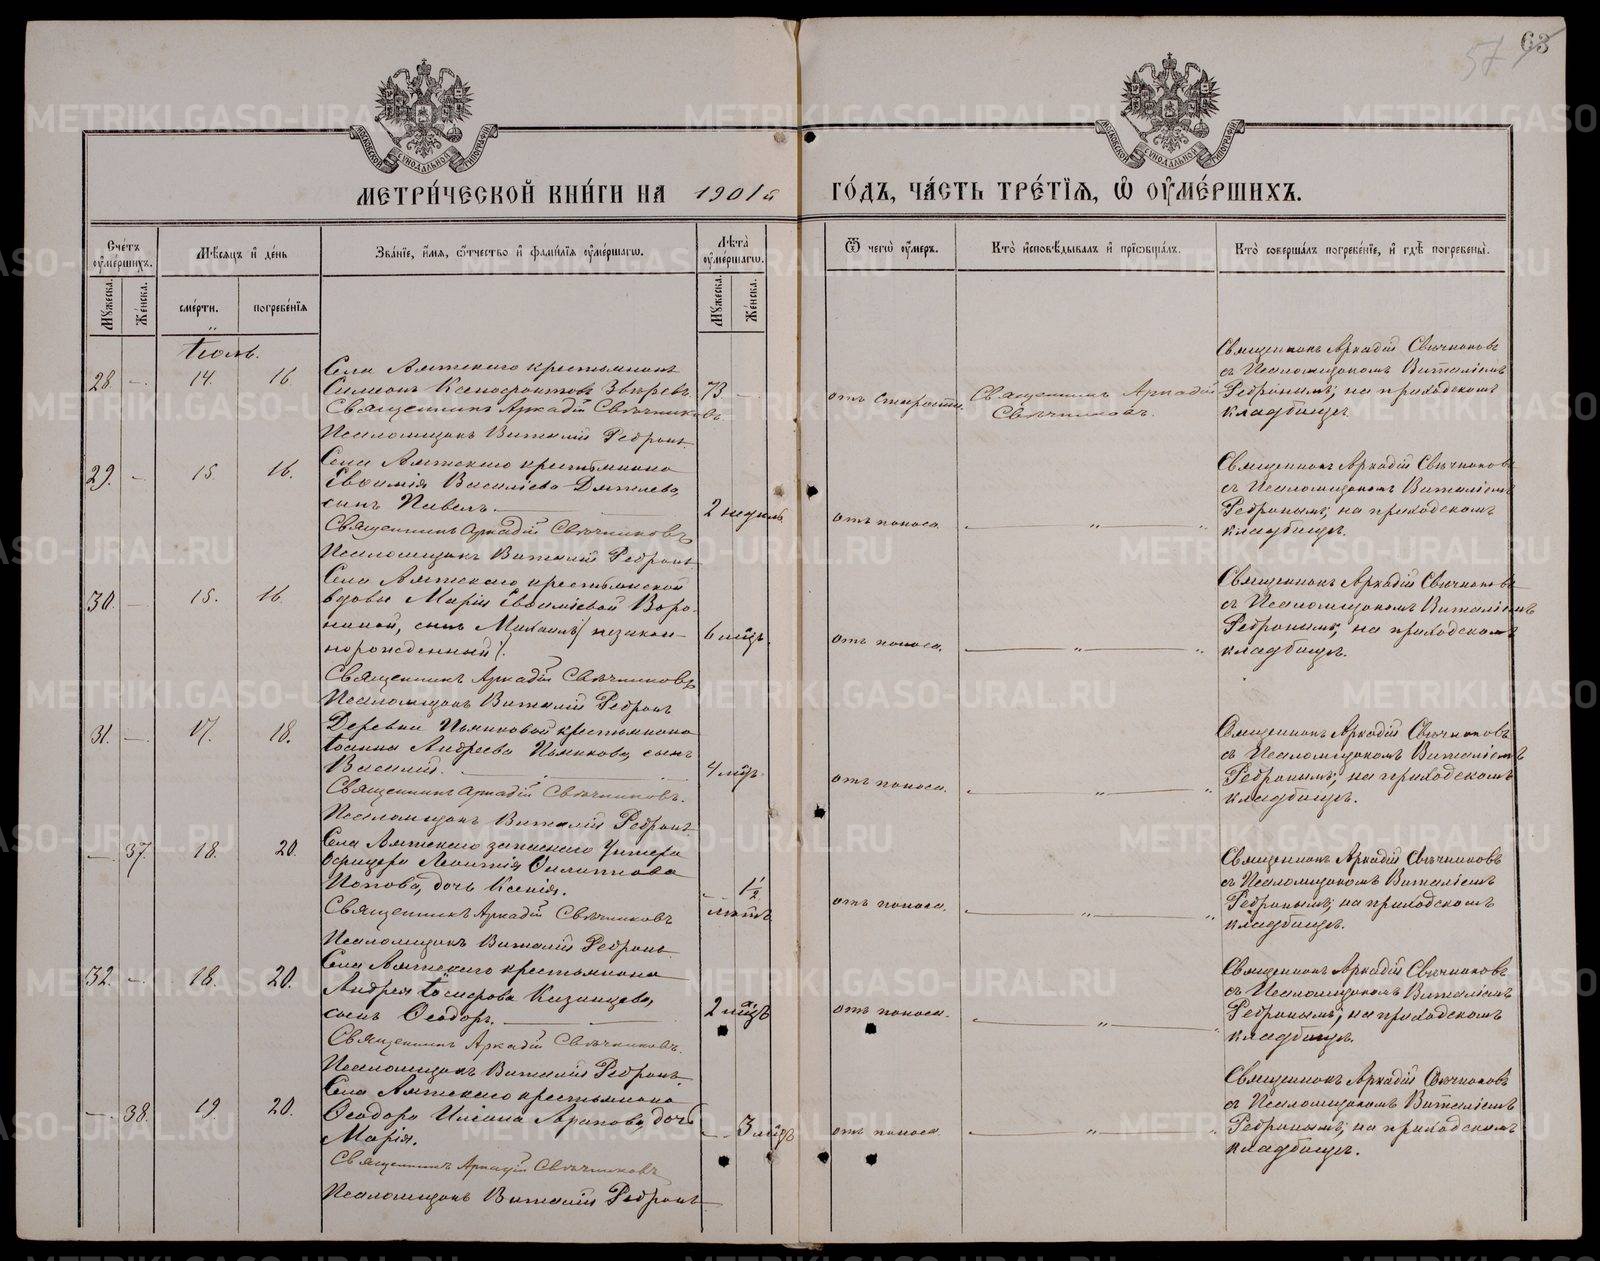 63
57
МЕТРИ́ЧЕСКОЙ КНИ́ГИ НА 1901й ГО́ДЪ, ЧА́СТЬ ТРЕ́ТІЯ, Ѡ ОУМЕ́РШИХЪ.
Счетъ оумершихъ.
Мужеска.
Женска.
Мѣсяцъ и день
смерти.
погребенія
Званіе, имя, отчество и фамилія оумершагѡ.
Лѣта оумершагѡ.
Мужеска.
Женска.
Ѿ чегѡ оумеръ.
Кто исповѣдывалъ и пріобщалъ.
Кто совершалъ погребеніе, и гдѣ погребены.
Іюль.
28 — 14. 16
Села Аятскаго крестьянинъ
Симеонъ Ксенофонтовъ Звѣревъ.
73 —
отъ старости.
Священникъ Аркадій
Свѣчниковъ.
Священникъ Аркадій Свѣчниковъ
съ Псаломщикомъ Виталіемъ
Ребринымъ, на приходскомъ
кладбищѣ.
Священникъ Аркадій Свѣчниковъ.
Псаломщикъ Виталій Ребринъ
29. — 15. 16.
Села Аятскаго крестьянина
Евѳимія Василіева
сынъ Павелъ.
2 недѣль
отъ поноса
— „ — „
Священникъ Аркадій Свѣчниковъ
съ Псаломщикомъ Виталіемъ
Ребринымъ, на приходскомъ
кладбищѣ.
Священникъ Аркадій Свѣчниковъ
Псаломщикъ Виталій Ребринъ
30. — 15. 16.
Села Аятскаго крестьянской
вдовы Маріи Евѳиміевой Воро-
ниной, сынъ Михаилъ (незакон-
норожденный).
6 мѣц.
отъ поноса.
— „ — „
Священникъ Аркадій Свѣчниковъ
съ Псаломщикомъ Виталіемъ
Ребринымъ, на приходскомъ
кладбищѣ.
Священникъ Аркадій Свѣчниковъ
Псаломщикъ Виталій Ребринъ
31. — 17. 18.
Деревни крестьянина
Іоанна Андреева сынъ
Василій.
4 мѣц.
отъ поноса.
— „ — „
Священникъ Аркадій Свѣчниковъ
съ Псаломщикомъ Виталіемъ
Ребринымъ, на приходскомъ
кладбищѣ.
Священникъ Аркадій Свѣчниковъ.
Псаломщикъ Виталій Ребринъ
— 37. 18. 20.
Села Аятскаго запаснаго Унтеръ
офицера Леонтія Филиппова
Попова, дочь Ксенія.
— 1½
лѣтъ
отъ поноса.
— „ — „
Священникъ Аркадій Свѣчниковъ
съ Псаломщикомъ Виталіемъ
Ребринымъ, на приходскомъ
кладбищѣ.
Священникъ Аркадій Свѣчниковъ
Псаломщикъ Виталій Ребринъ
32. — 18. 20.
Села Аятскаго крестьянина
Андрея Іосифова Казанцева,
сынъ Ѳеодоръ.
2 мѣц.
отъ поноса.
— „ — „
Священникъ Аркадій Свѣчниковъ
съ Псаломщикомъ Виталіемъ
Ребринымъ, на приходскомъ
кладбищѣ.
Священникъ Аркадій Свѣчниковъ.
Псаломщикъ Виталій Ребринъ
— 38. 19. 20.
Села Аятскаго крестьянина
Ѳеодора Иліина Арапова, дочь
Марія.
— 3 мѣц.
отъ поноса.
— „ — „
Священникъ Аркадій Свѣчниковъ
съ Псаломщикомъ Виталіемъ
Ребринымъ, на приходскомъ
кладбищѣ.
Священникъ Аркадій Свѣчниковъ
Псаломщикъ Виталій Ребринъ
METRIKI.GASO-URAL.RU